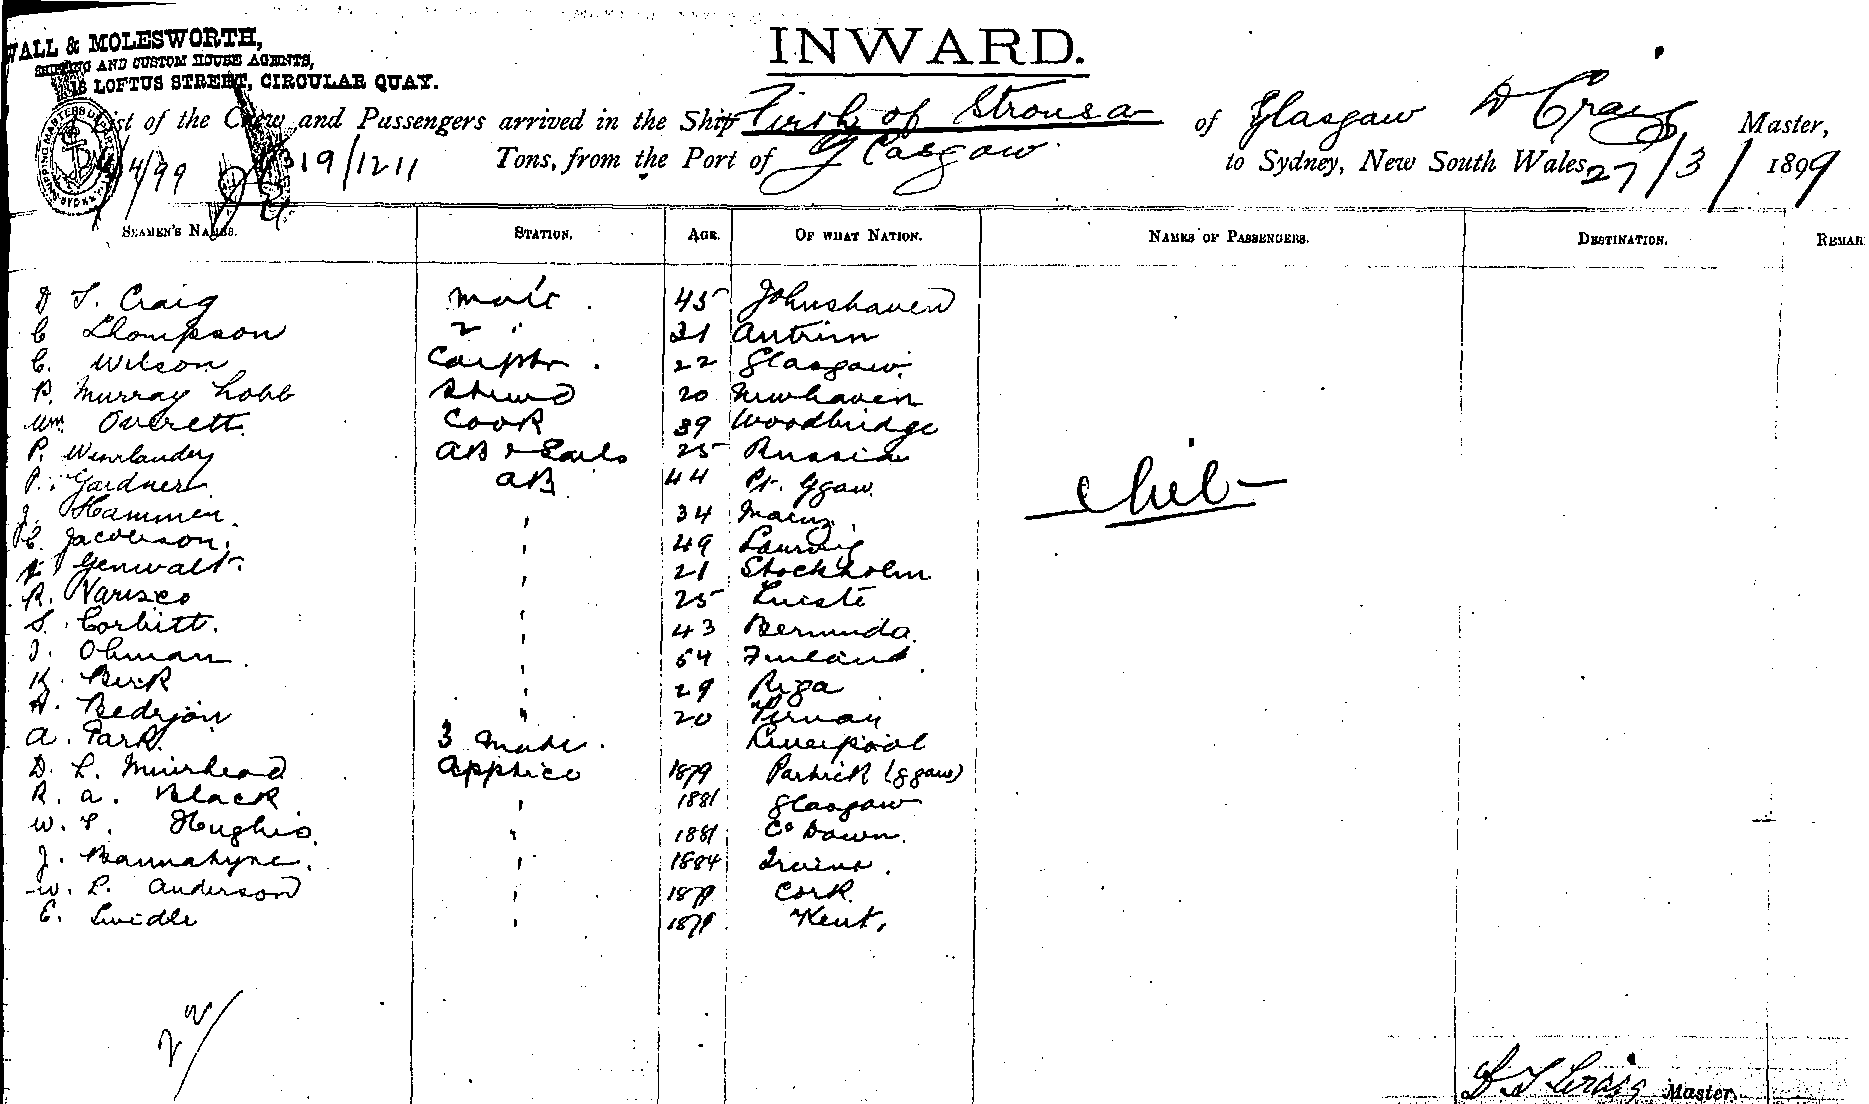 WALL & MOLESWORTH,
SHIPPING AND CUSTOM HOUSE AGENTS,
18 LOFTUS STREET, CIRCULAR QUAY.
INWARD.
List of the Crew and Passengers arrived in the Ship Firth of Stronsa of Glasgow D Craig Master,
4/99 1319/1211 Tons, from the Port of Glasgow to Sydney, New South Wales 27/3/1899
SEAMEN'S NAMES. STATION. AGE. OF WHAT NATION. NAMES OF PASSENGERS. DESTINATION. REMAR
D T. Craig mate 45 Johnshaven
C Thompson 2 " 21 Antrim
C. Wilson Carptr. 22 Glasgow.
P. Murray Lobb Stewd 20 Newhaven
Wm Overett. Cook 39 Woodbridge
P. AB & Sails 25 Russia
P. Gardner AB 44 Pt. Ggow.
J. Hammen. " 34 Mainz.
C. Jacobson. " 49 Laurvig
Genwalt. " 21 Stockholm
R. " 25
S. Corbitt. " 43 Bermuda.
J. Ohman. " 54 Finland
K. Birk " 29 Riga
A. " 20 Pernau
A. Park. 3 mate. Liverpool
D. L. Muirhead Apptice 1879 Partick (ggow)
R. A. Black " 1881 Glasgow
W. P. Hughes. " 1881 Co Down.
J. Bannatyne. " 1884 Irvine.
W. L. Anderson " 1879 Cork
E. " 1879 Kent.
22/
D T Craig Master.